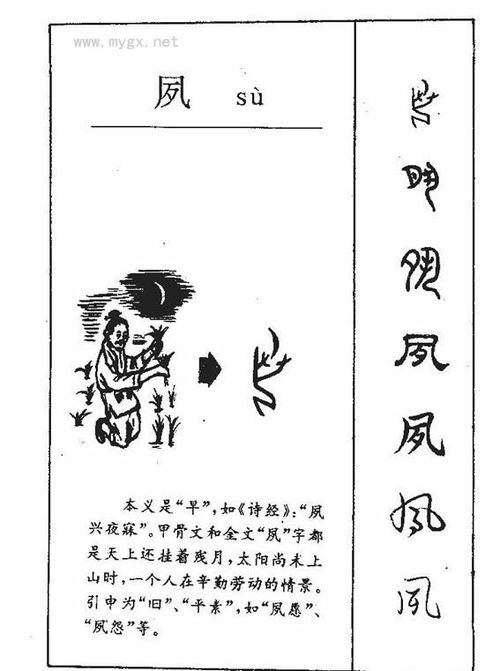 www.mygx.net
夙 sù
本义是“早”,如《诗经》:“夙
兴夜寐”。甲骨文和金文“夙”字都
是天上还挂着残月,太阳尚未上
山时,一个人在辛勤劳动的情景。
引申为“旧”、“平素”,如“夙愿”、
“夙怨”等。
夙
夙
夙
夙